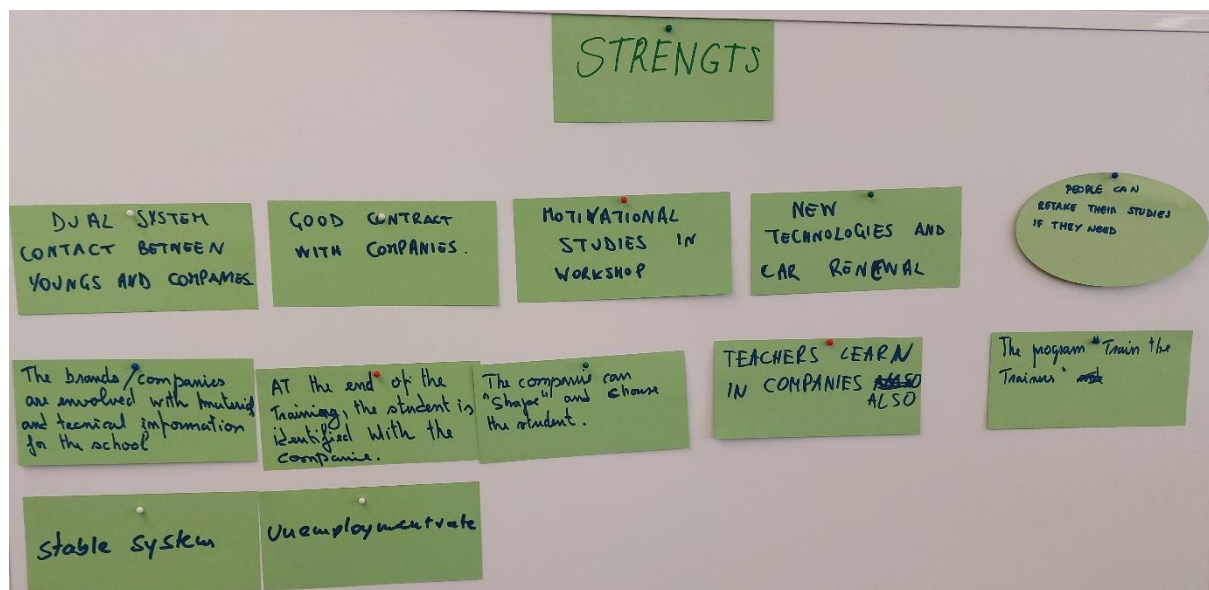 STRENGTS
DUAL SYSTEM
CONTACT BETWEEN
YOUNGS AND COMPANIES
GOOD CONTRACT
WITH COMPANIES.
MOTIVATIONAL
STUDIES IN
WORKSHOP
NEW
TECHNOLOGIES AND
CAR RENEWAL
PEOPLE CAN
RETAKE THEIR STUDIES
IF THEY NEED
The brands/companies
are envolved with material
and tecnical information
for the school
AT the end of the
training, the student is
identified with the
companie.
The companie can
"Shape" and choose
the student.
TEACHERS LEARN
IN COMPANIES
ALSO
The program "Train the
Trainer"
Stable system
Unemploymentrate